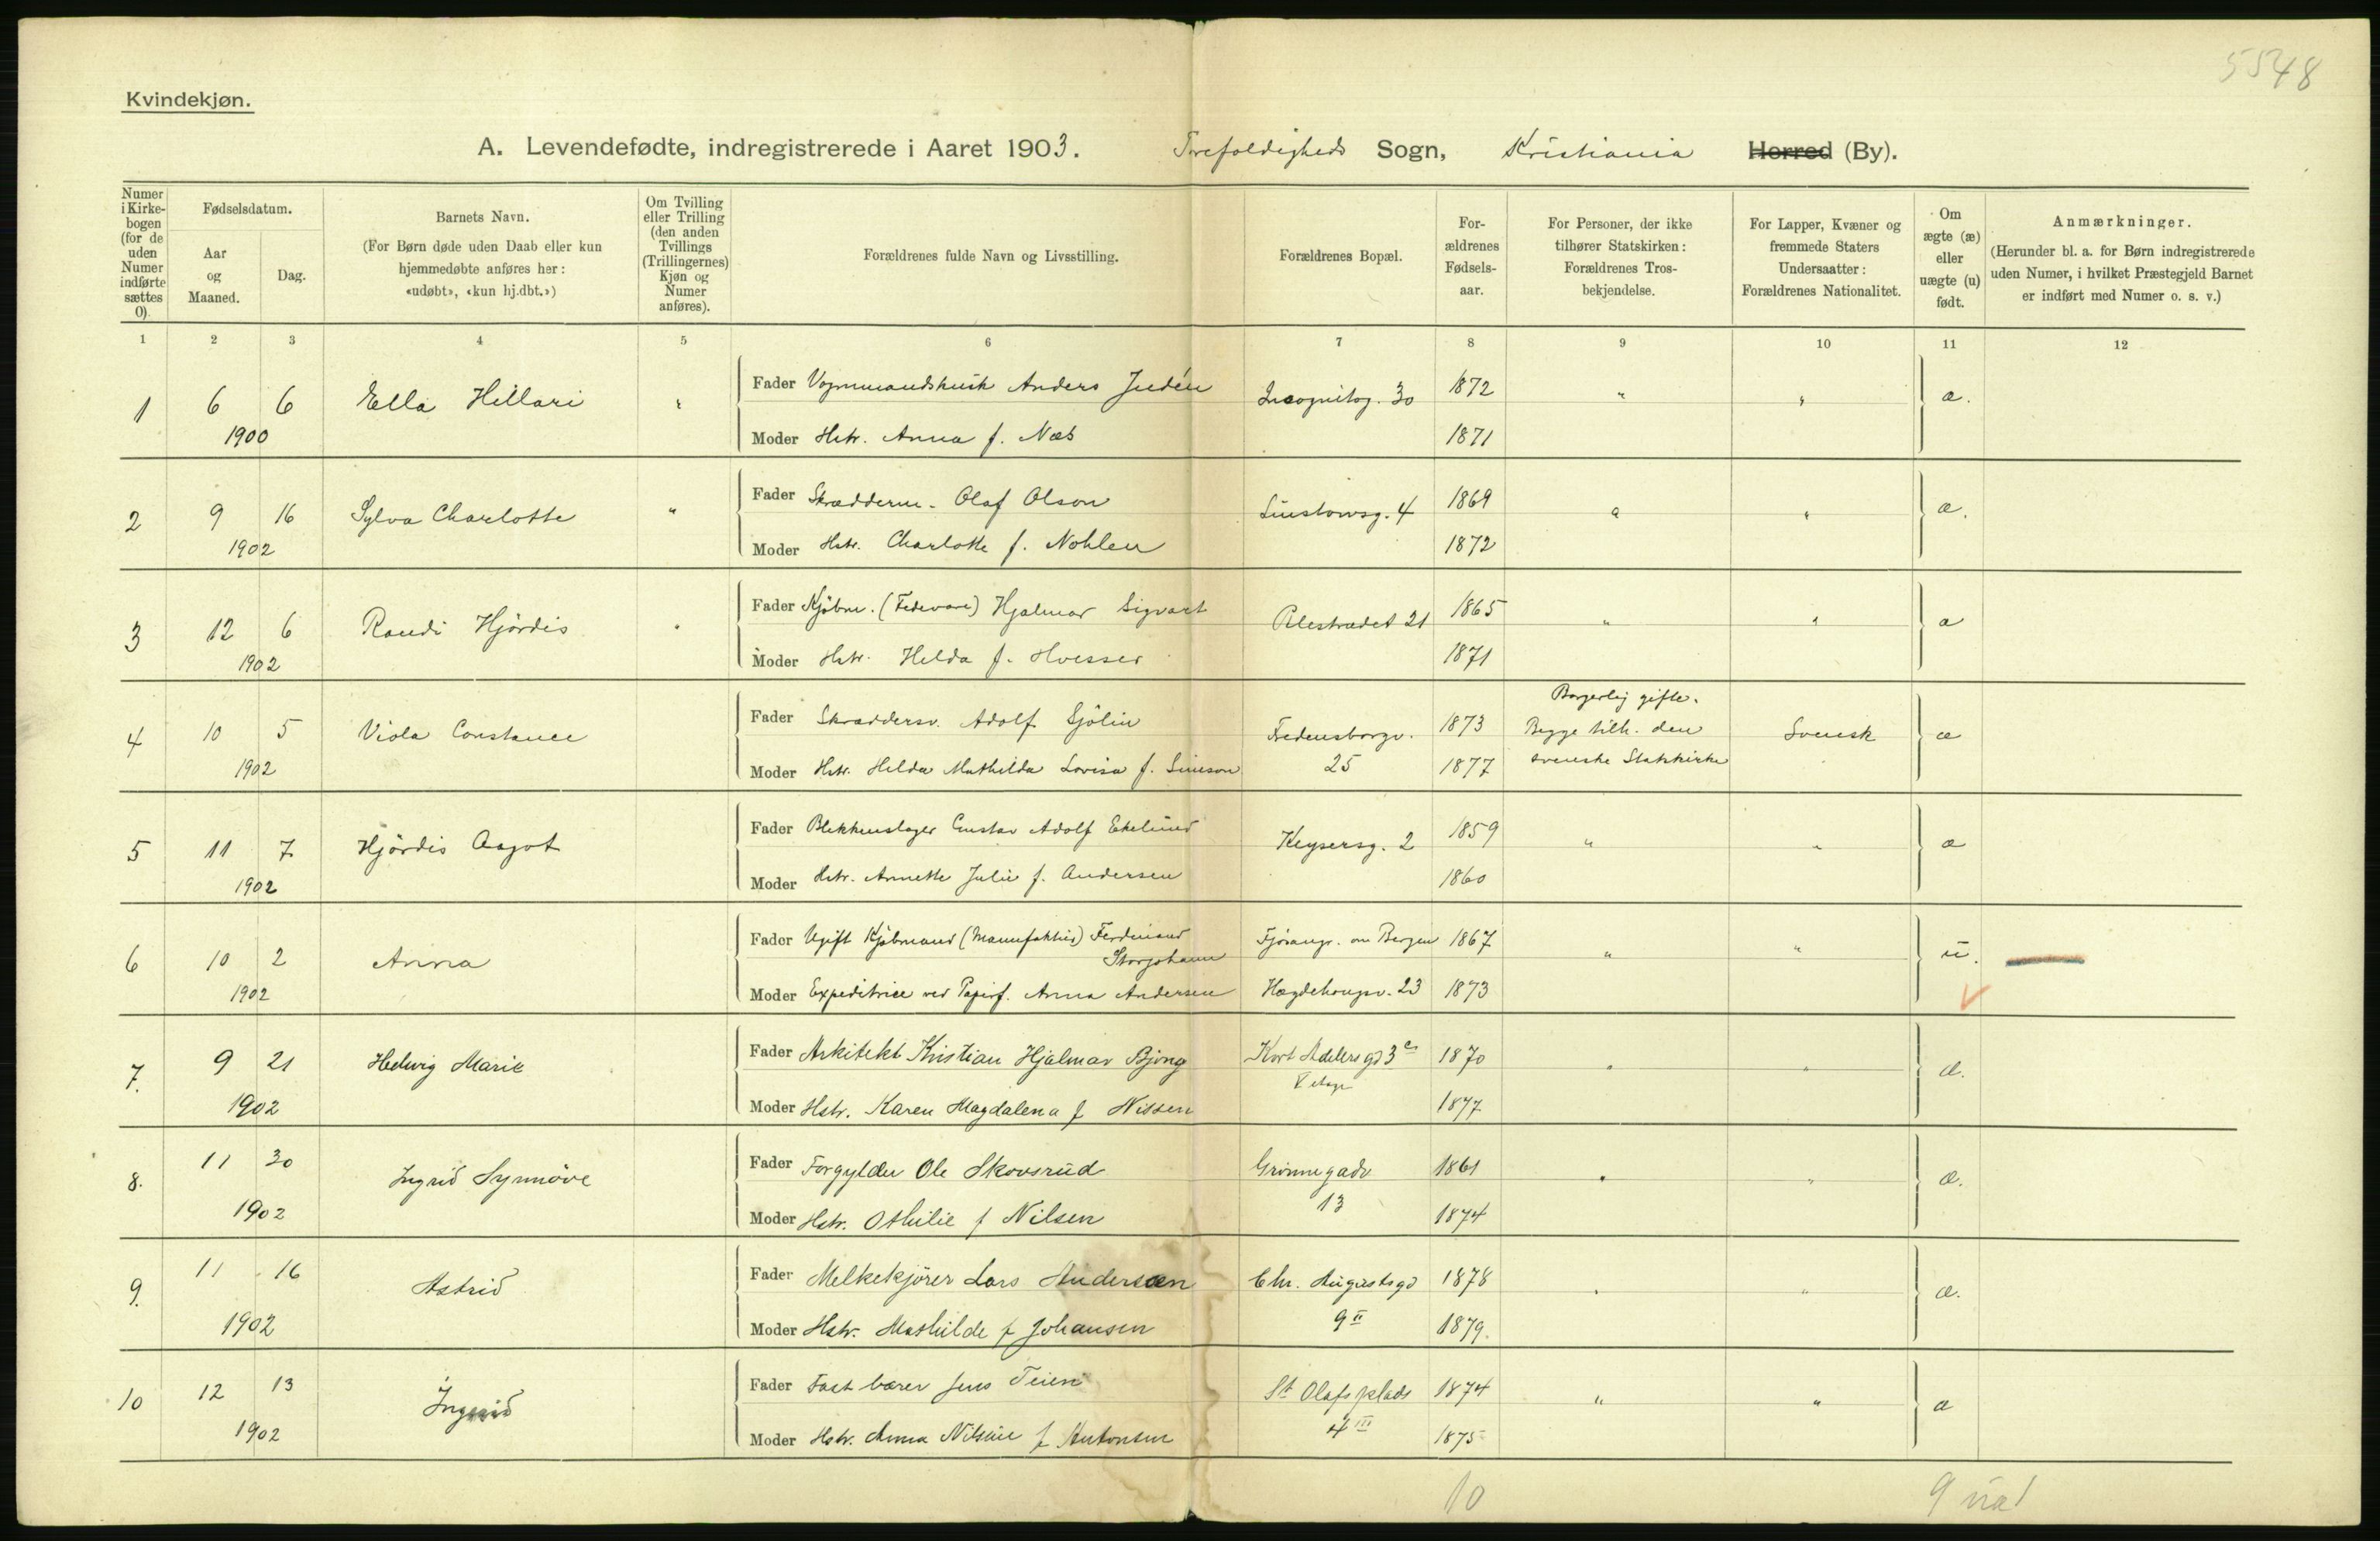 5548
Kvindekjøn.
A. Levendefødte, indregistrerede i Aaret 1903. Trefoldigheds Sogn, Kristiania Herred (By).
Numer i Kirke-bogen (for de uden Numer indførte sættes 0).
Fødselsdatum.
Aar og Maaned.
Dag.
Barnets Navn.
(For Børn døde uden Daab eller kun
hjemmedøbte anføres her:
«udøbt», «kun hj.dbt.»)
Om Tvilling eller Trilling (den anden Tvillings (Trillingernes) Kjøn og Numer anføres).
Forældrenes fulde Navn og Livsstilling.
Forældrenes Bopæl.
For-ældrenes Fødsels-aar.
For Personer, der ikke
tilhører Statskirken:
Forældrenes Tros-
bekjendelse.
For Lapper, Kvæner og
fremmede Staters
Undersaatter:
Forældrenes Nationalitet.
Om ægte (æ) eller uægte (u) født.
Anmærkninger.
(Herunder bl. a. for Børn indregistrerede
uden Numer, i hvilket Præstegjeld Barnet
er indført med Numer o. s. v.)
1 2 3 4 5 6 7 8 9 10 11 12
1 6 6 Ella Hillari " Fader Vognmandskusk Anders Judén Incognitog. 30 1872 " " æ.
1900 Moder Hstr. Anna f. Næs 1871
2 9 16 Sylva Charlotte " Fader Skrædderm. Olaf Olson Linstowsg. 4 1869 " " æ.
1902 Moder Hstr. Charlotte f. Nohlen 1872
3 12 6 Randi Hjördis " Fader Kjöbm. (Fedevare) Hjalmar Sigvart Pilestrædet 21 1865 " " æ
1902 Moder Hstr. Helda f. Hvesser 1871
4 10 5 Viola Constance Fader Skræddersv. Adolf Sjölin Fredensborgv. 1873 Borgerlig gifte. Begge tilh. den Svensk æ
1902 Moder Hstr. Helda Mathilda Lovisa f. Simson 25 1877 svenske Statskirke
5 11 7 Hjördis Aagot Fader Blikkenslager Gustav Adolf Ekelund Keysersg. 2 1859 " " æ
1902 Moder Hstr. Annette Julie f. Andersen 1860
6 10 2 Anna Fader Ugift Kjöbmand (Manufaktur) Ferdinand Storjohann Fjösangr. om Bergen 1867 " " u.
1902 Moder Expeditrice ved Papirf. Anna Andersen Hægdehougsv. 23 1873
7. 9 21 Hedvig Marie Fader Arkitekt Kristian Hjalmar Bjong Kort Adelersgd 3 c 1870 " " æ.
V etage
1902 Moder Hstr. Karen Magdalena f Nissen 1877
8. 11 30 Ingrid Synnöve Fader Forgylder Ole Skovsrud Grönnegade 1861 " " æ.
1902 Moder Hstr. Othilie f Nilsen 13 1874
9. 11 16 Astrid Fader Melkekjörer Lars Andersen Chr. Augustsgd 1878 " " æ.
1902 Moder Hstr. Mathilde f Johansen 9 II 1879.
10 12 13 Ingrid Fader Fast bærer Jens Teien St Olafs plads 1874 " " æ
1902 Moder Hstr. Anna f Antonsen 4 III 1875
10